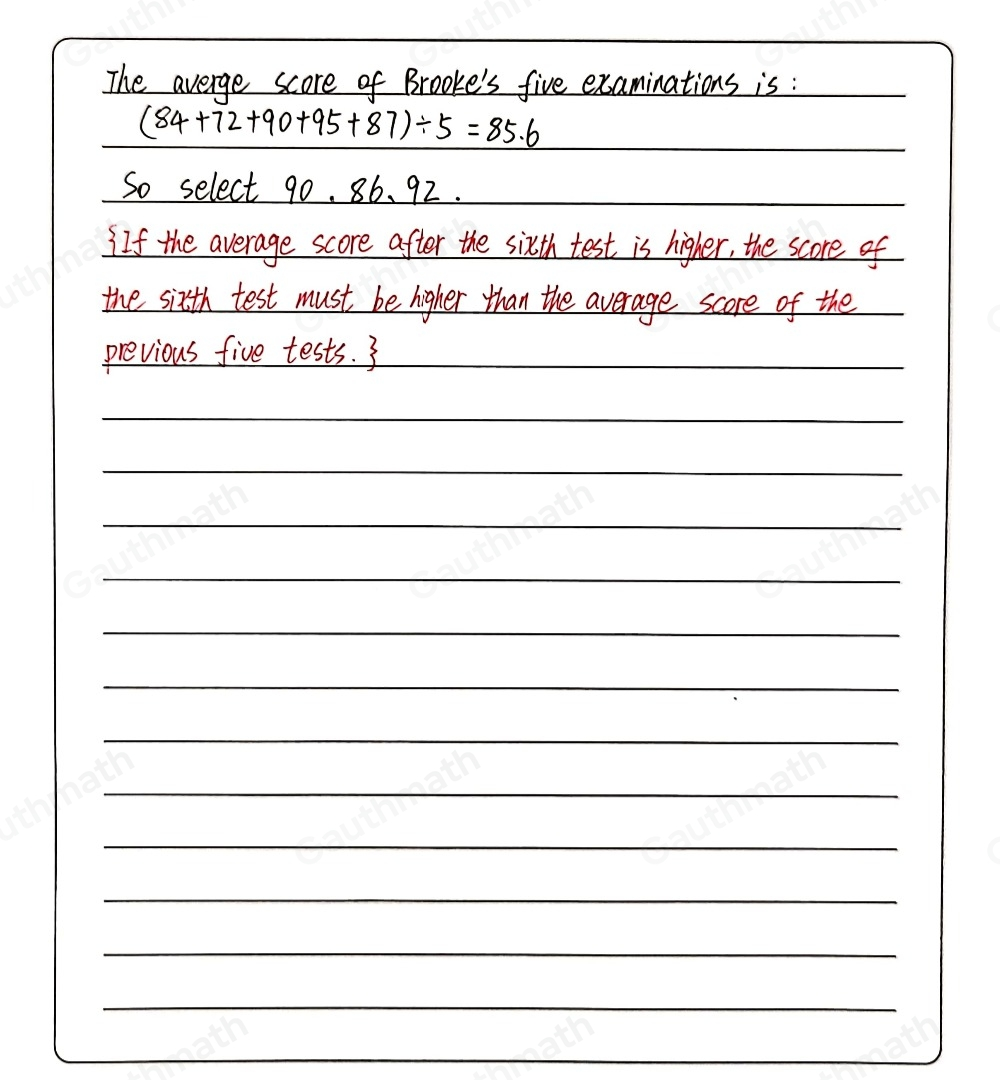 The averge score of Brooke's five examinations is:
(84+72+90+95+87)÷5 = 85.6
So select 90. 86、92.
{If the average score after the sixth test is higher, the score of
the sixth test must be higher than the average score of the
previous five tests.}